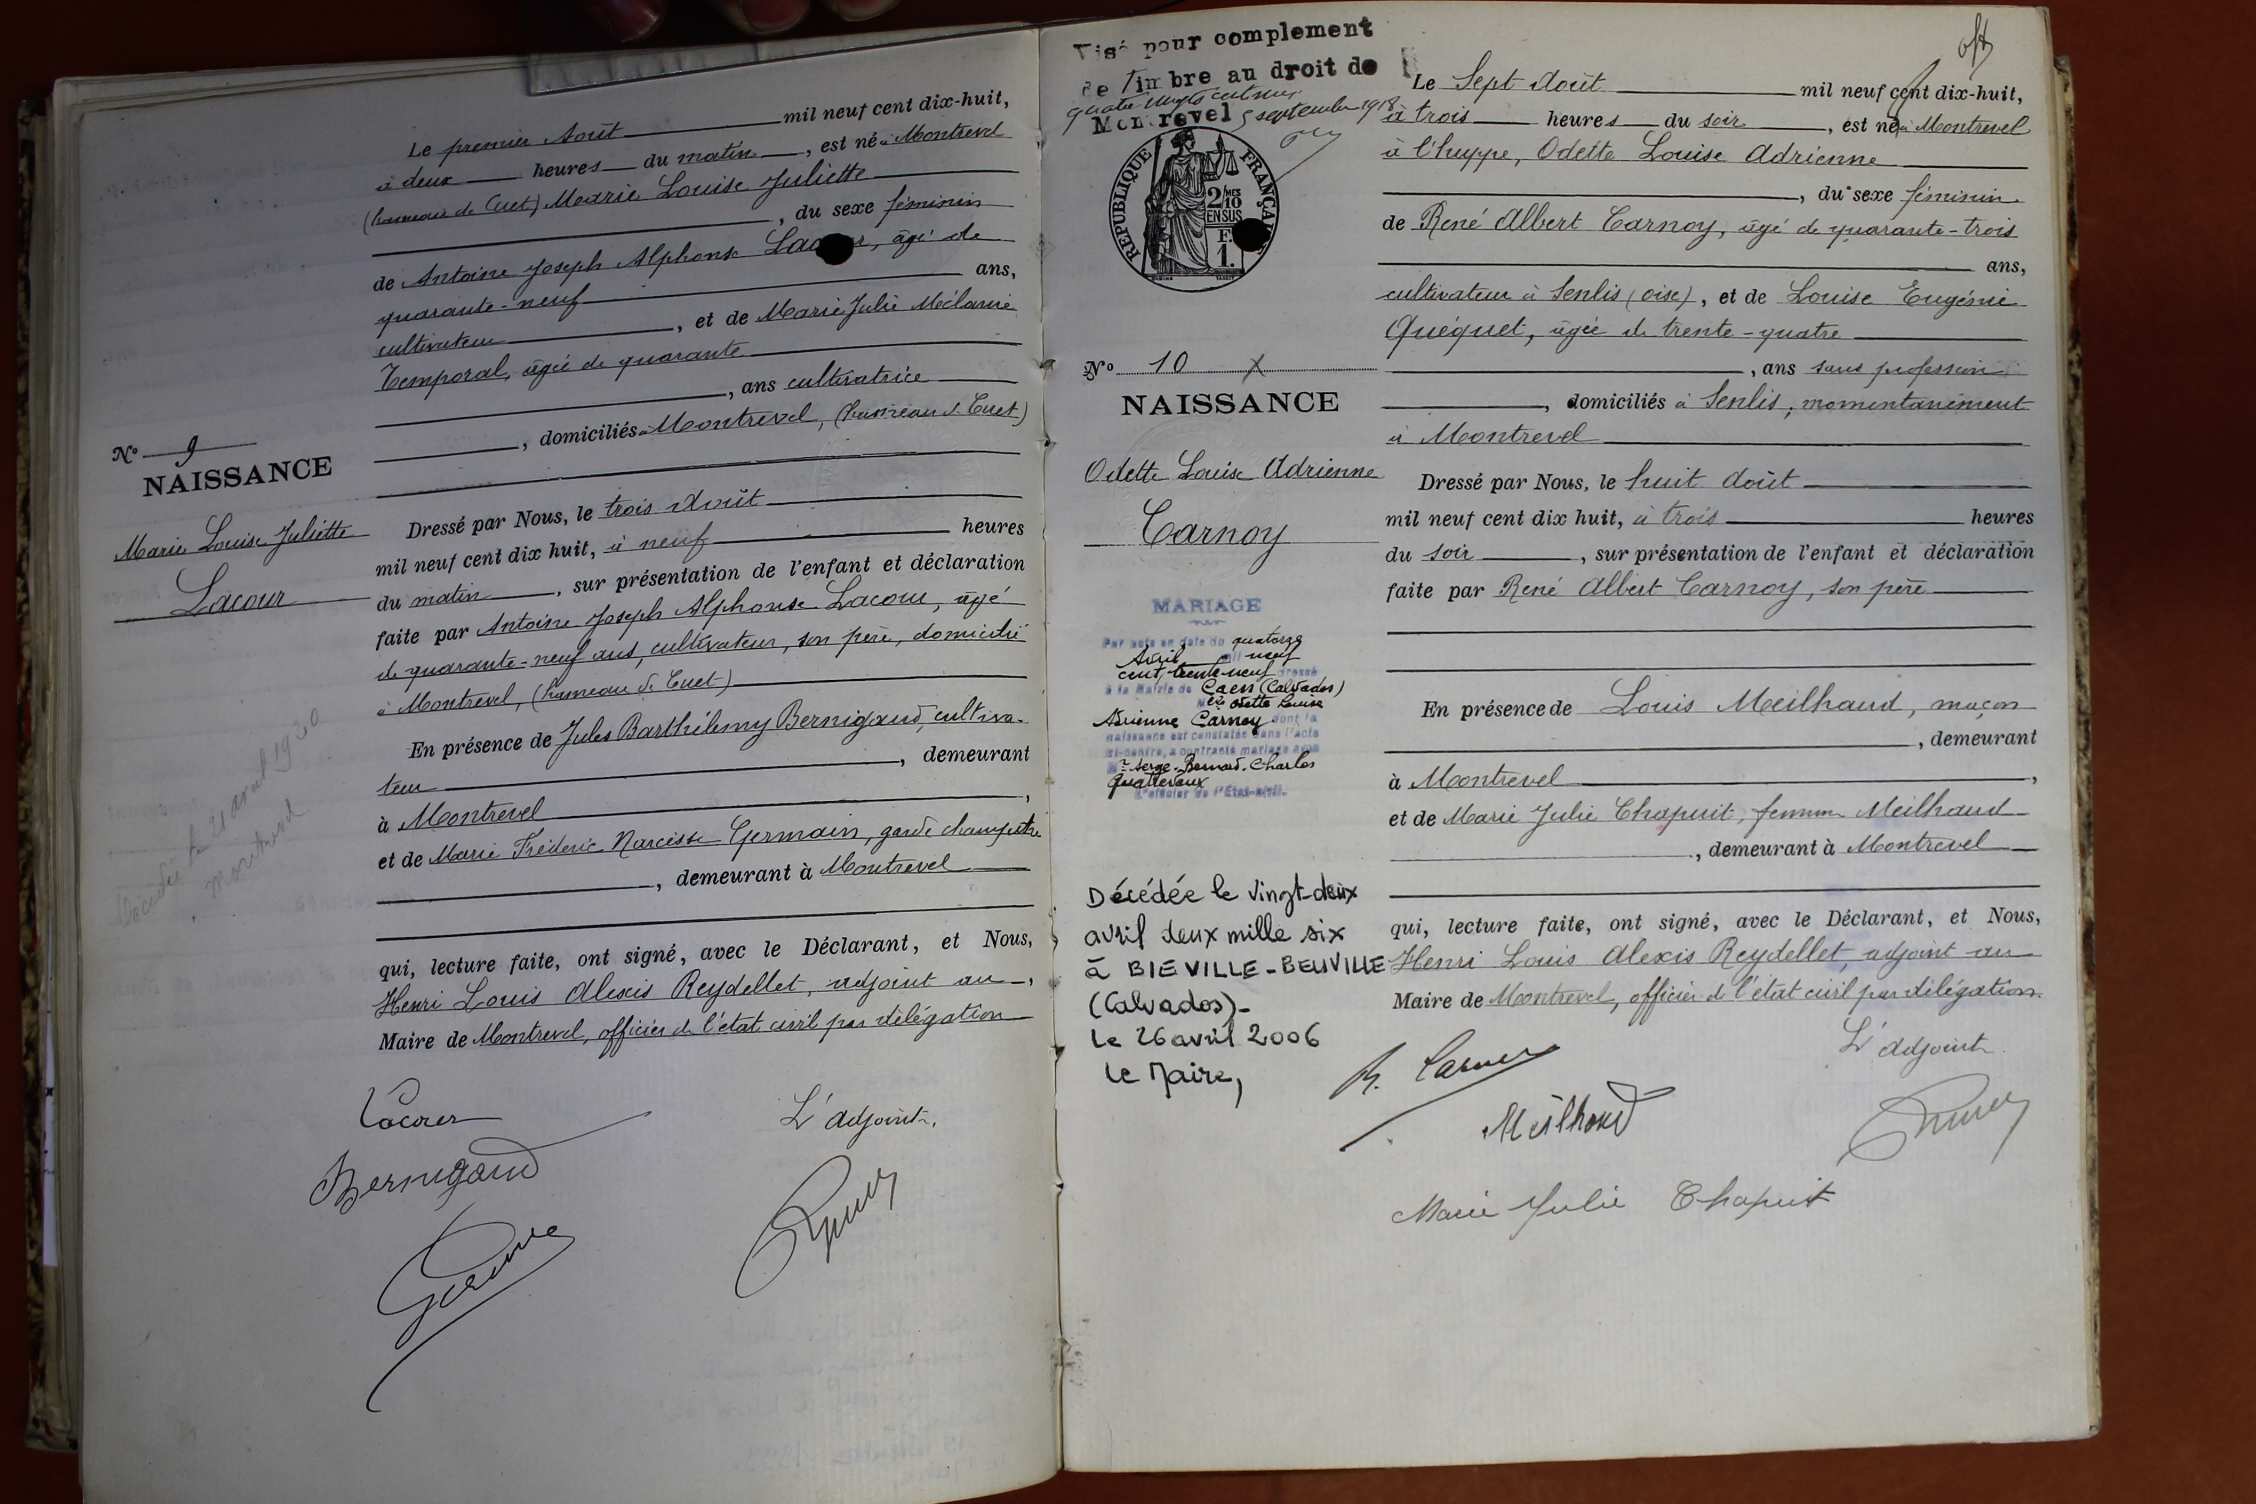 Le premier Août mil neuf cent dix-huit,
à deux heures du matin, est né à Montrevel
(hameau de Cuet) Marie Louise Juliette
, du sexe féminin
de Antoine Joseph Alphonse Lacour, âgé de
quarante-neuf ans,
cultivateur, et de Marie Julie Mélanie
Temporal, âgée de quarante
, ans cultivatrice
, domiciliés à Montrevel, (hameau de Cuet)
No 9
NAISSANCE
Marie Louise Juliette
Lacour
Dressé par Nous, le trois Août
mil neuf cent dix huit, à neuf heures
du matin, sur présentation de l'enfant et déclaration
faite par Antoine Joseph Alphonse Lacour, âgé
de quarante-neuf ans, cultivateur, son père, domicilié
à Montrevel, (hameau de Cuet)
En présence de Jules Barthélemy Bernigaud, cultiva-
teur, demeurant
à Montrevel,
et de Marie Fréderic Narcisse Germain, garde champêtre
, demeurant à Montrevel
qui, lecture faite, ont signé, avec le Déclarant, et Nous,
Henri Louis Alexis Reydellet, adjoint au,
Maire de Montrevel, officier de l'état civil par délégation
Lacour
L'adjoint.
Bernigaud
avril 1930
Visé pour complement
de Timbre au droit de
Montrevel 5 septembre 1918
RÉPUBLIQUE FRANÇAISE
2/10 MES
EN SUS
F.
1.
No 10 X
NAISSANCE
Odette Louise Adrienne
Carnoy
MARIAGE
Par acte en date du quatorze
Avril mil neuf
cent trente-neuf dressé
à la Mairie de Caen (Calvados)
Odette Louise
Adrienne Carnoy dont la
naissance est constatée dans l'acte
ci-contre, a contracté mariage avec
Mr Serge-Bernard-Charles
Quattevaux
L'officier de l'État-civil.
Décédée le vingt-deux
avril deux mille six
à BIEVILLE-BEUVILLE
(Calvados)-
le 26 avril 2006
le Maire,
Le Sept Août mil neuf cent dix-huit,
à trois heures du soir, est née à Montrevel
à l'huppe, Odette Louise Adrienne
, du sexe féminin
de René Albert Carnoy, âgé de quarante-trois
ans,
cultivateur à Senlis (oise), et de Louise Eugénie
Quéquet, âgée de trente-quatre
, ans sans profession
, domiciliés à Senlis, momentanément
à Montrevel
Dressé par Nous, le huit Août
mil neuf cent dix huit, à trois heures
du soir, sur présentation de l'enfant et déclaration
faite par René Albert Carnoy, son père
En présence de Louis Meilhaud, maçon
, demeurant
à Montrevel,
et de Marie Julie Chapuit, femme Meilhaud
, demeurant à Montrevel
qui, lecture faite, ont signé, avec le Déclarant, et Nous,
Henri Louis Alexis Reydellet, adjoint au
Maire de Montrevel, officier de l'état civil par délégation
L'adjoint.
R. Carnoy
Meilhaud
Marie Julie Chapuit